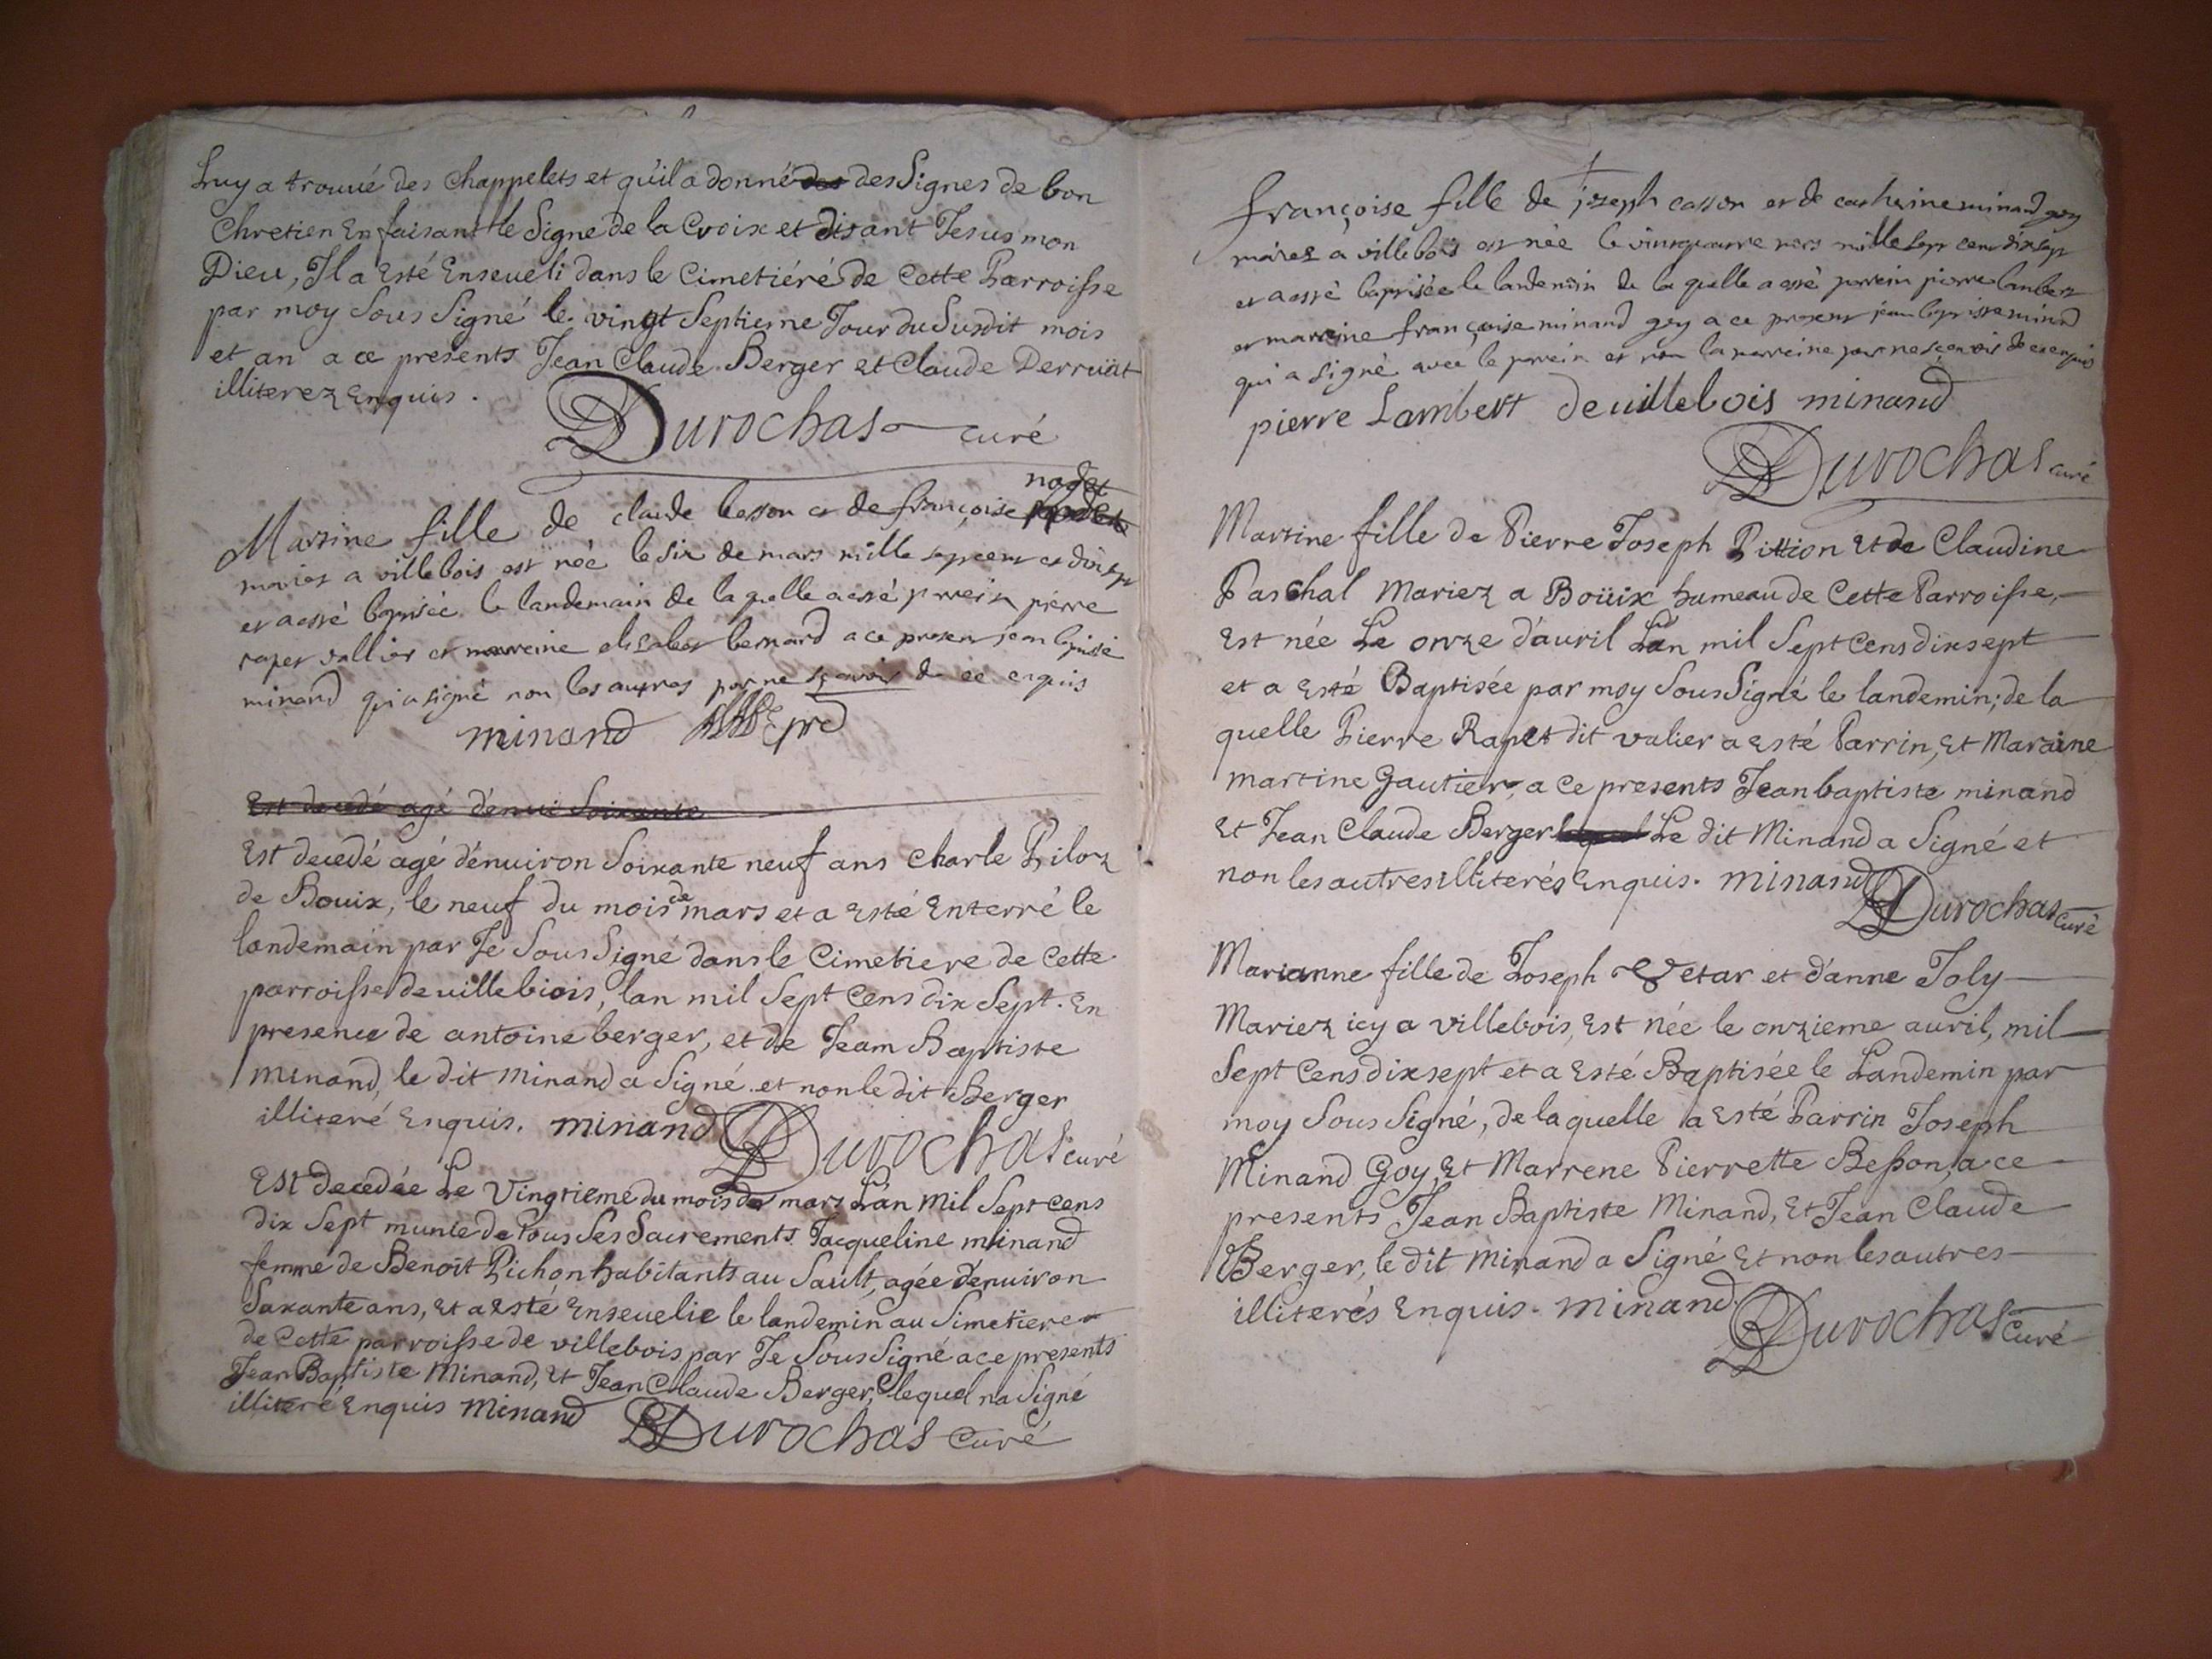 Luy a trouué des chappelets et qu'il a donné des des Signes de bon
Chretien En faisant le Signe de la Croix et disant Jesus mon
Dieu, Il a Esté Enseueli dans le Cimetiéré de Cette Parroisse
par moy Sous Signé le vingt Septieme Jour du Susdit mois
et an a ce presents Jean Claude Berger et Claude Derruät
illiterez Enquis.
Durochas curé
nodet
Martine fille de claude besson et de françoise
mariez a villebois est née le six de mars mille sept cent et dixsept
et a esté baptisée le landemain de la quelle a esté parrein pierre
rapet vallier et marreine elisabet bernard a ce present jean baptiste
minand qui a signé non les autres pour ne sçavoir de ce enquis
minand
Est decedé agé d'enui Soixante
Est decedé agé d'enuiron Soixante neuf ans Charle Piloz
de Bouix, le neuf du mois de mars et a Esté Enterré le
landemain par Je Sous Signé dans le Cimetiere de Cette
parroisse de villebiois, lan mil Sept Cens dix Sept. En
presence de antoine berger, et de Jeam Baptiste
minand, le dit minand a Signé et non le dit Berger
illiteré Enquis. minand Durochas curé
Est decedée Le Vingtieme du mois de mars L'an Mil Sept cens
dix Sept munie de tous Ses Sacrements Jacqueline minand
femme de Benoît Pichon habitants au Sault, agée d'enuiron
Saxante ans, et a Esté Enseuelie le landemin au Simetiere
de Cette parroisse de villebois par Je Sous Signé a ce presents
Jean Baptiste Minand, et Jean Claude Berger, lequel na Signé
illiteré Enquis Minand Durochas Curé
françoise fille de joseph casson et de catherine minand goy
mariez a villebois est née le vintquatre mars mille sept cent dixsept
et a esté baptisée le landemain de la quelle a esté parrein pierre lambert
et marreine françoise minand goy a ce present jean baptiste minand
qui a signé avec le parrein et non la marreine pour ne sçavoir de ce enquis
pierre Lambert de uillebois minand
Durochas curé
Martine fille de Pierre Joseph Pittion et de Claudine
Paschal Mariez a Boüix hameau de Cette Parroisse,
Est née Le onze d'auril Lan mil Sept Cens dix sept
et a Esté Baptisée par moy Sous Signé le landemin; de la
quelle Pierre Rapet dit valier a Esté Parrin, et Maraine
martine Gautier, a Ce presents Jean baptiste minand
et Jean Claude Berger Le dit Minand a Signé et
non les autres illiterés Enquis. minand Durochas Curé
Marianne fille de Joseph Vetar et d'anne Joly
Mariez icy a villebois, Est née le onzieme auril, mil
Sept Cens dix sept et a Esté Baptisée le Landemin par
moy Sous Signé, de la quelle a Esté Parrin Joseph
Minand Goy, et Marrene Pierrette Besson, a ce
presents Jean Baptiste Minand, et Jean Claude
Berger, le dit minand a Signé et non les autres
illiterés Enquis. minand Durochas Curé